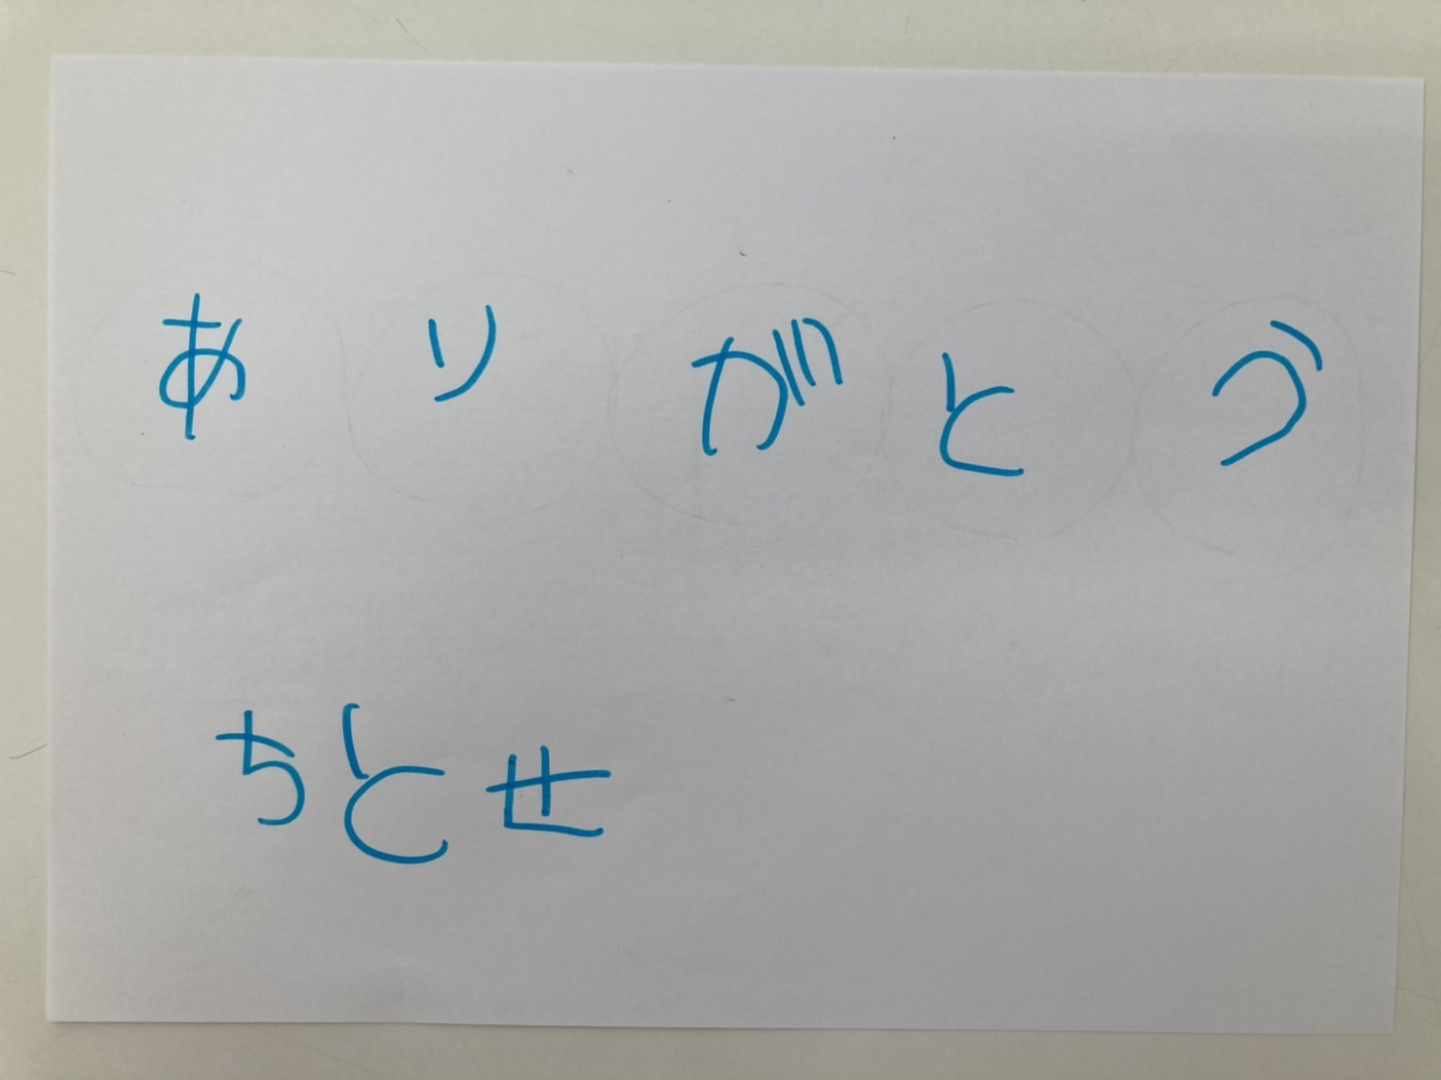 ありがとう
ちとせ